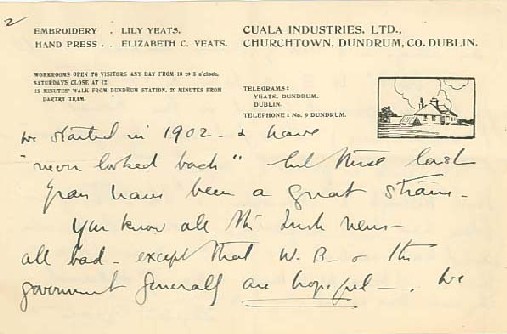 2
EMBROIDERY . LILY YEATS.
HAND PRESS . . ELIZABETH C. YEATS.
CUALA INDUSTRIES, LTD.,
CHURCHTOWN, DUNDRUM, CO. DUBLIN.
WORKROOMS OPEN TO VISITORS ANY DAY FROM 10 TO 5 o'clock.
SATURDAYS CLOSE AT 12
15 MINUTES' WALK FROM DUNDRUM STATION, 25 MINUTES FROM
TRAM.
TELEGRAMS:
YEATS, DUNDRUM.
DUBLIN.
TELEPHONE: No. 9 DUNDRUM.
we started in 1902 - & have
"never looked back" but these last
years have been a great strain -
You know all the Irish news -
all bad - except that W. B. & the
government generally are hopeful - . We